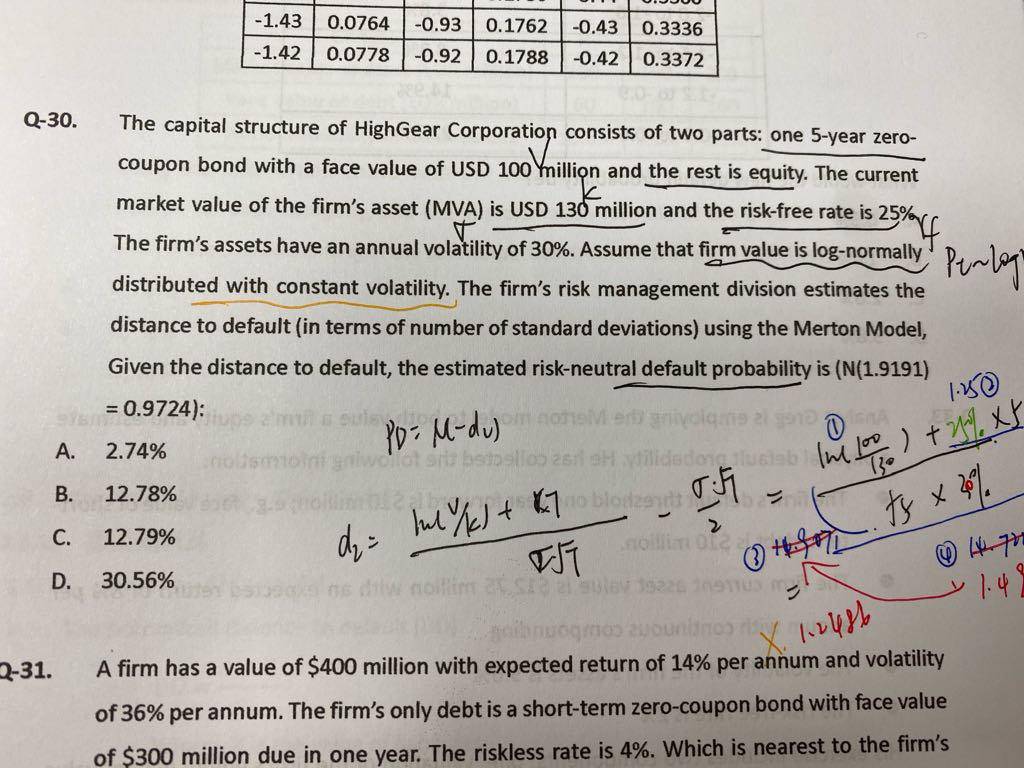 -1.43 0.0764 -0.93 0.1762 -0.43 0.3336
-1.42 0.0778 -0.92 0.1788 -0.42 0.3372
Q-30. The capital structure of HighGear Corporation consists of two parts: one 5-year zero-
coupon bond with a face value of USD 100 million and the rest is equity. The current
V
k
market value of the firm's asset (MVA) is USD 130 million and the risk-free rate is 25%.
rf
The firm's assets have an annual volatility of 30%. Assume that firm value is log-normally
distributed with constant volatility. The firm's risk management division estimates the
distance to default (in terms of number of standard deviations) using the Merton Model,
Given the distance to default, the estimated risk-neutral default probability is (N(1.9191)
= 0.9724):
1.25 ②
①
A. 2.74%
B. 12.78%
C. 12.79%
D. 30.56%
d₂ =
σ√T
2
=
ln( 100
130 ) + 25% × 5
√5 ×
③
④
=
1.2486
Q-31. A firm has a value of $400 million with expected return of 14% per annum and volatility
of 36% per annum. The firm's only debt is a short-term zero-coupon bond with face value
of $300 million due in one year. The riskless rate is 4%. Which is nearest to the firm's